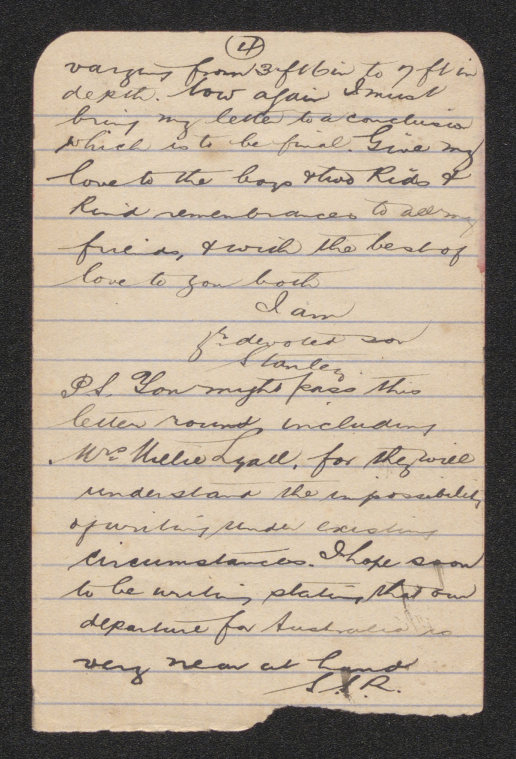 4
varying from 3ft 6in to 7ft in
depth. Now again I must
bring my letter to a conclusion
which is to be final. Give my
love to the boys & two Kids &
kind remembrances to all my
friends, & with the best of
love to you both
I am
yr devoted son
Stanley.
P.S. You might pass this
letter round, including
Mrs Millie Lyall, for they will
understand the impossibility
of writing under existing
circumstances. I hope soon
to be writing stating that our
departure for Australia is
very near at hand
S.S.R.